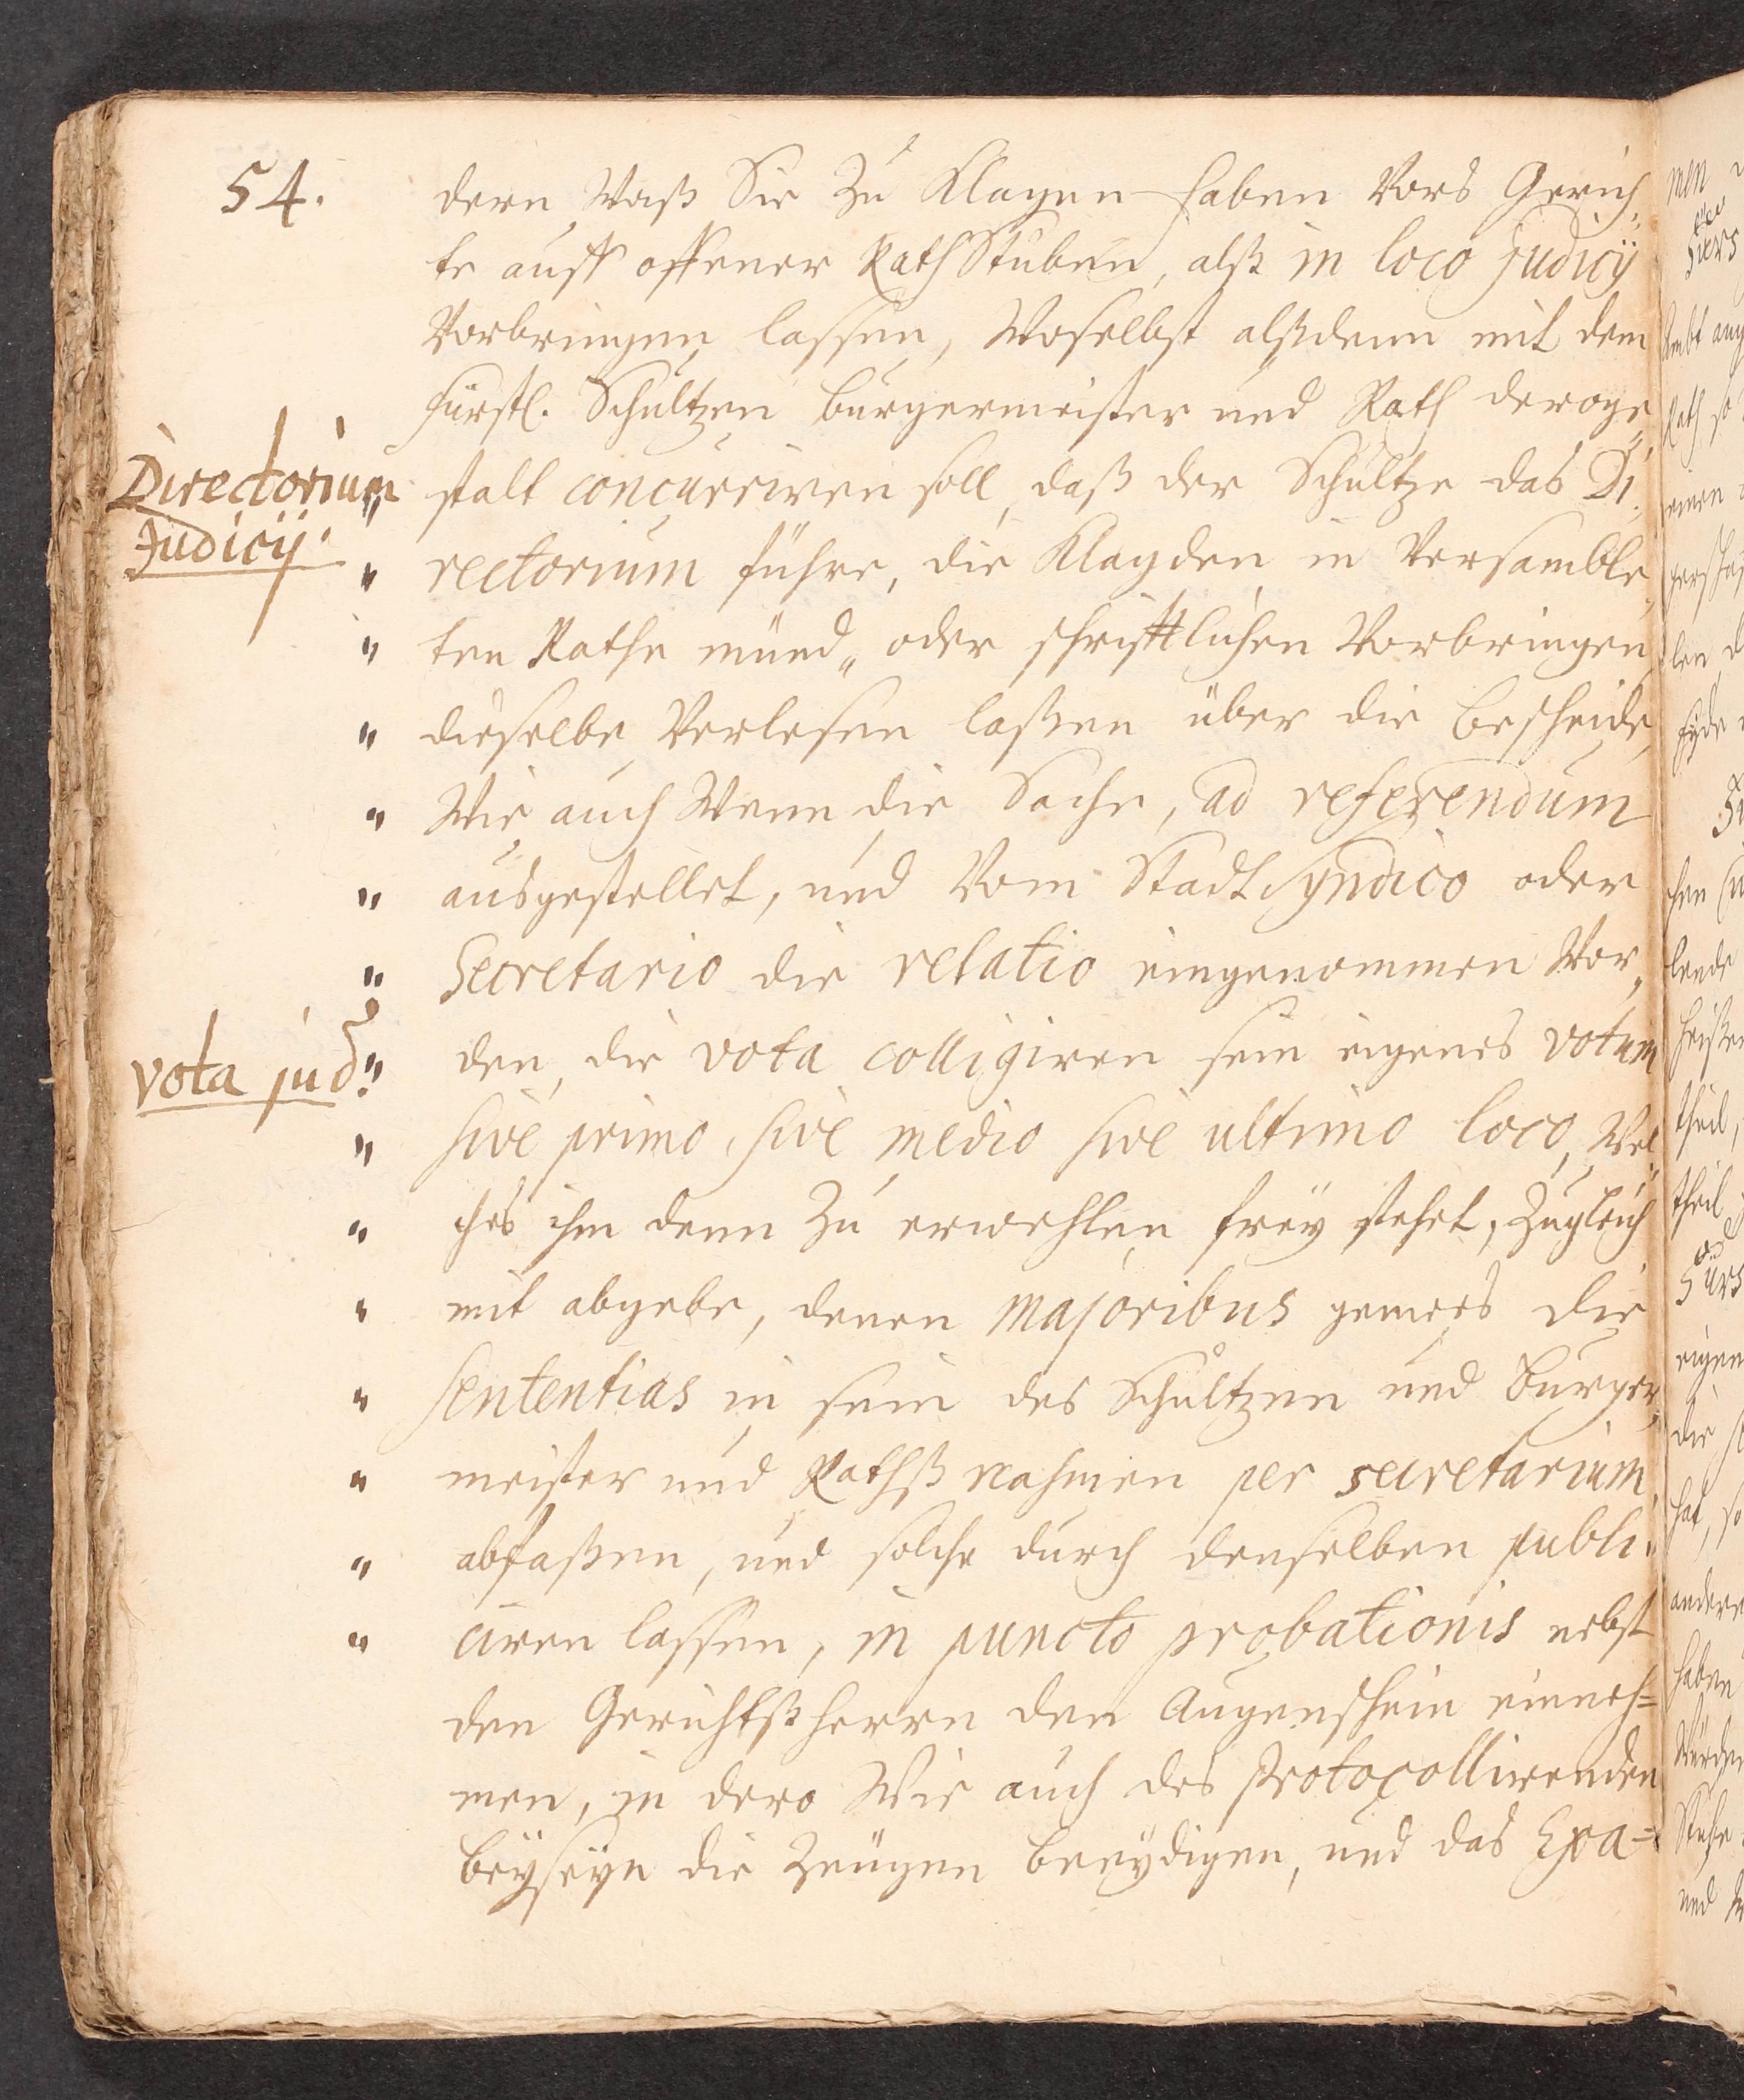 54.
dern Waß Sie Zu Klagen haben Vors Gerich„
te auff offener RathStuben, alß in loco Judicÿ
Vorbringen lassen, Woselbst alßdenn mit dem
fürstl. Schultzen Bürgermeister und Rath deroge„
Directorium Judicÿ.
" stalt concurriren soll, daß der Schultze das Di„
" rectorium führe, die Klagden in Versamble„
" ten Rathe münd„ oder schrifftlichen Vorbringen
" dieselbe Verlesen laßen über die Bescheide,
" Wie auch Wenn die Sache, ad referendum
" ausgestellet, und Vom Stadt Syndico oder
" Secretario die relatio eingenommen Wor„
vota jud:
" den, die vota colligiren sein eigenes votum
" sive primo, sive medio sive ultimo loco, Wel„
" ches ihm denn Zu erwehlen freÿ stehet, Zugleich
" mit abgebe, denen majoribus gemees die
" sententias in sein des Schultzen und Bürger„
" meister und Rathß nahmen per secretarium
" abfaßen, und solche durch denselben publi„
" ciren lassen, in puncto probationis nebst
den Gerichtßherrn den Augenschein einneh=
men, in dero Wie auch des Protocollirenden
beÿseÿn die Zeugen beeÿdigen, und das Exa=